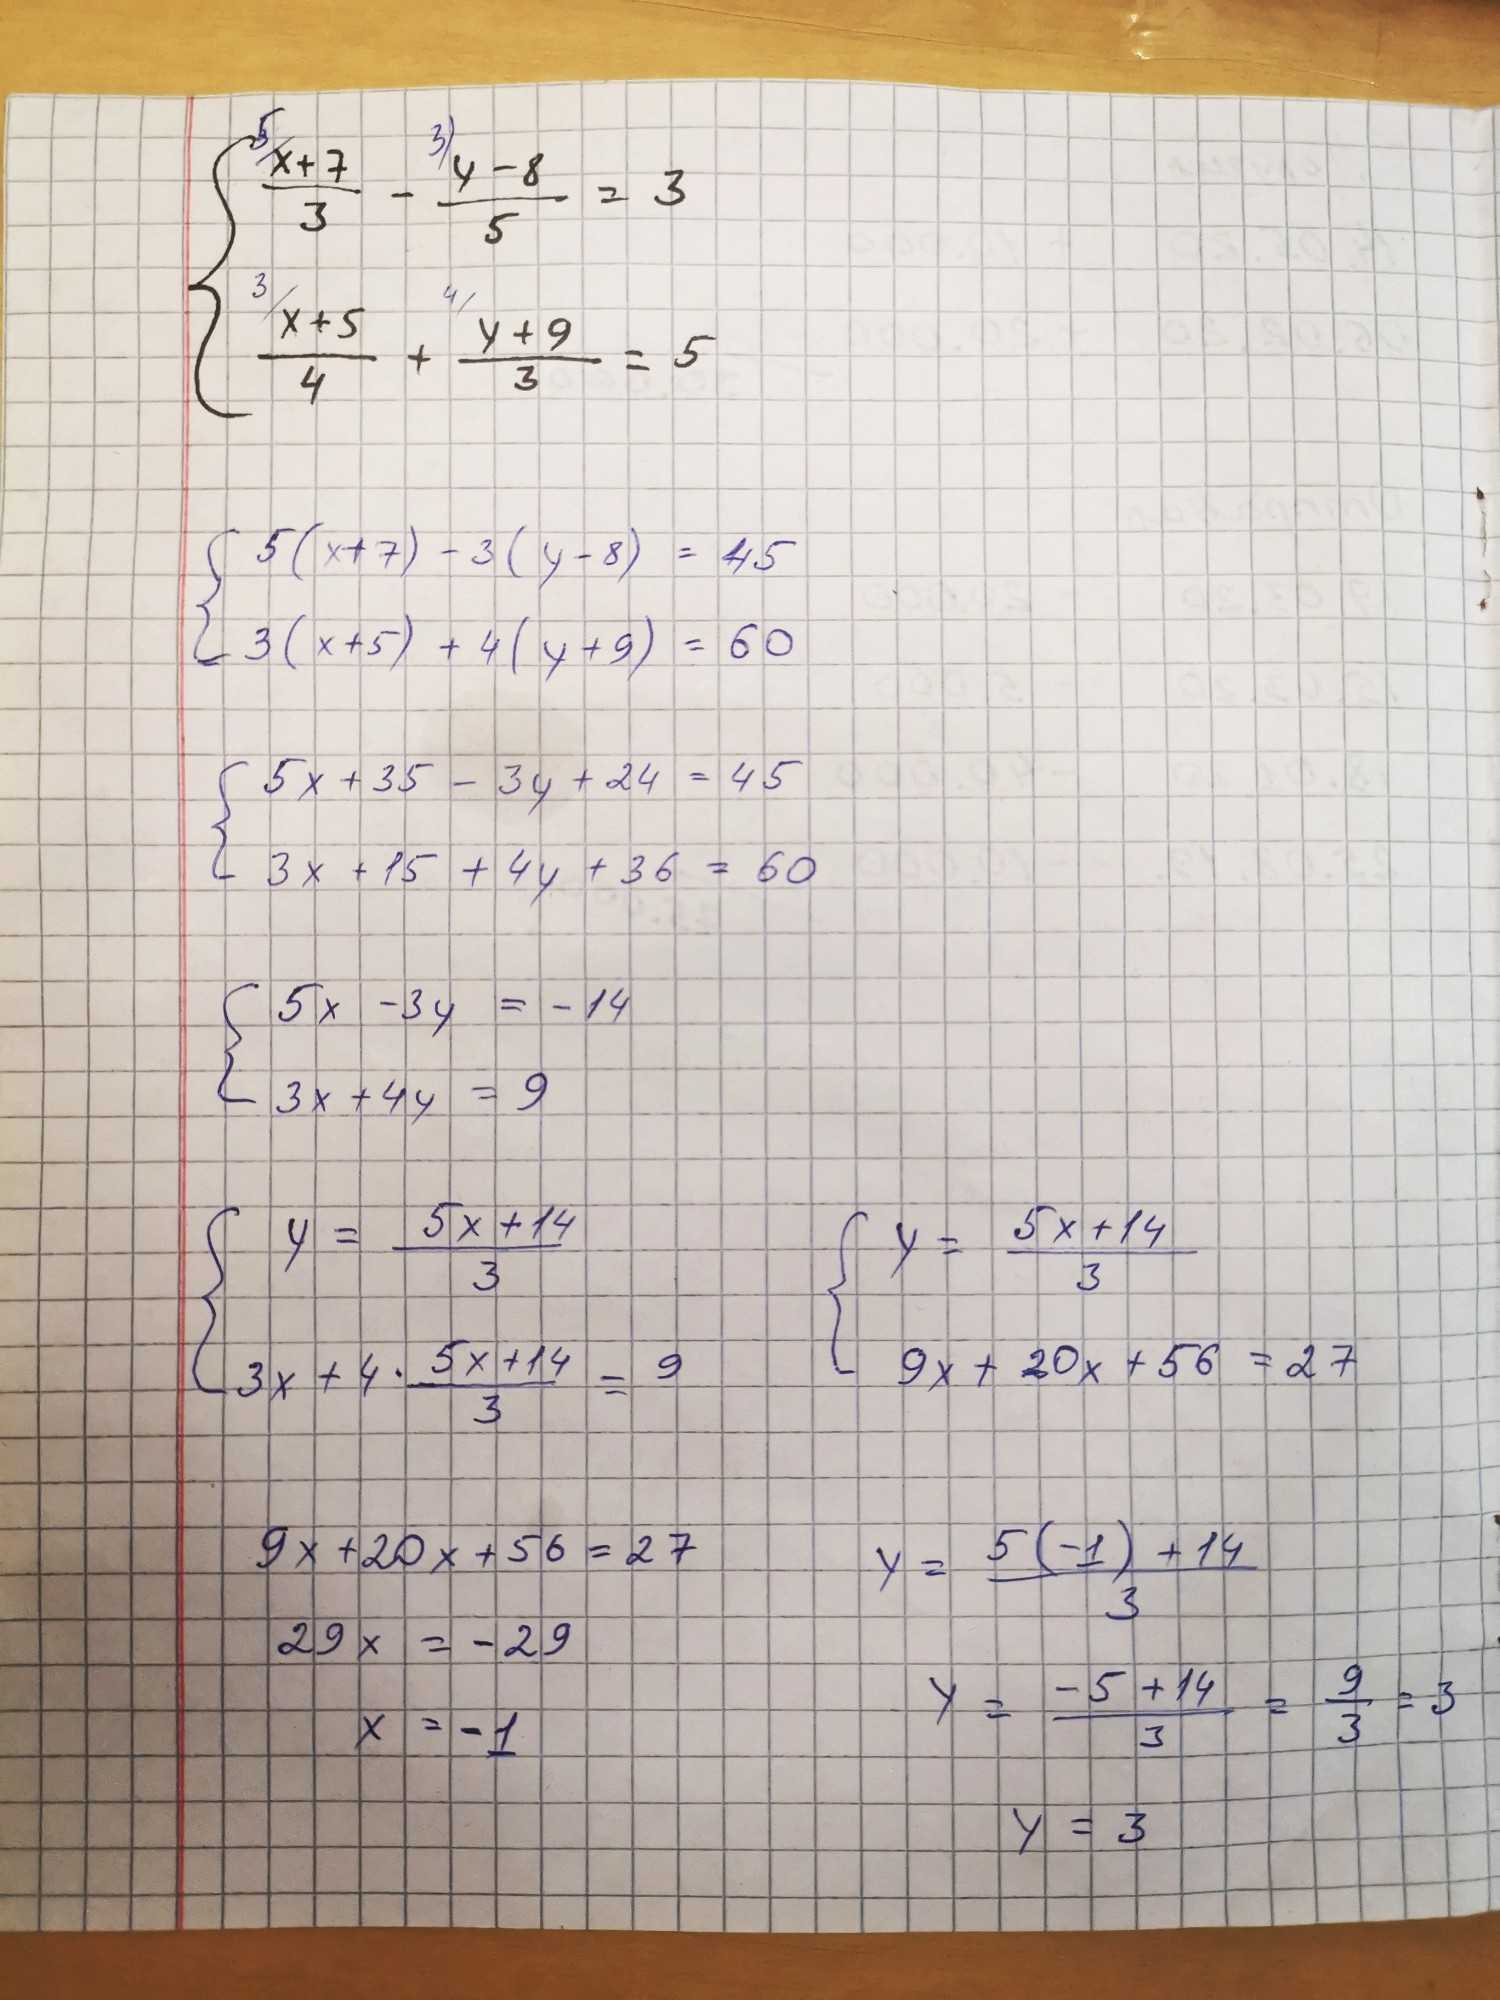 5/ x+7/3 - 3) y-8/5 = 3
3/ x+5/4 + 4/ y+9/3 = 5
5(x+7) - 3(y-8) = 45
3(x+5) + 4(y+9) = 60
5x+35 - 3y+24 = 45
3x+15 + 4y+36 = 60
5x -3y = -14
3x+4y = 9
y = 5x+14/3
3x+4· 5x+14/3 = 9
y = 5x+14/3
9x+20x+56 = 27
9x+20x+56 = 27
29x = -29
x = -1
y = 5(-1)+14/3
y = -5+14/3 = 9/3 = 3
y = 3